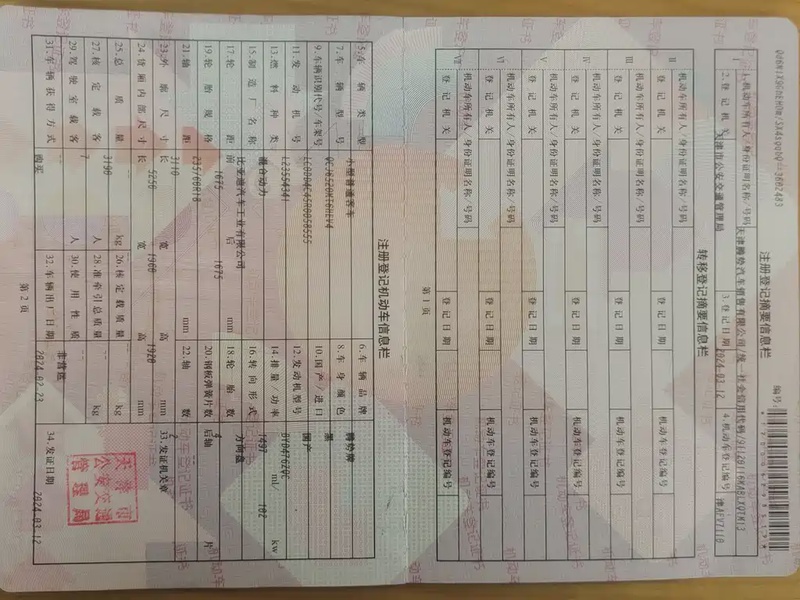 注册登记摘要信息栏
编号:
Ⅰ
1.机动车所有人/身份证明名称/号码
天津腾势汽车销售有限公司/统一社会信用代码/
2.登记机关
天津市公安交通管理局
3.登记日期
2024-03-12
4.机动车登记编号
津AFV7110
转移登记摘要信息栏
Ⅱ
机动车所有人/身份证明名称/号码
登记机关
登记日期
机动车登记编号
Ⅲ
机动车所有人/身份证明名称/号码
登记机关
登记日期
机动车登记编号
Ⅳ
机动车所有人/身份证明名称/号码
登记机关
登记日期
机动车登记编号
Ⅴ
机动车所有人/身份证明名称/号码
登记机关
登记日期
机动车登记编号
Ⅵ
机动车所有人/身份证明名称/号码
登记机关
登记日期
机动车登记编号
Ⅶ
机动车所有人/身份证明名称/号码
登记机关
登记日期
机动车登记编号
第 1 页
注册登记机动车信息栏
5.车辆类型 小型普通客车 6.车辆品牌 腾势牌
7.车辆型号 QCJ6520MT6HEV4 8.车身颜色 黑
9.车辆识别代号/车架号 LC0DD4C45R0058555 10.国产/进口 国产
11.发动机号 L23554341 12.发动机型号 BYD476ZQC
13.燃料种类 混合动力 14.排量/功率 1497 ml/ 102 kw
15.制造厂名称 比亚迪汽车工业有限公司 16.转向形式 方向盘
17.轮距 前 1675 后 1675 mm 18.轮胎数 4
19.轮胎规格 235/60R18 20.钢板弹簧片数 后轴 片
21.轴距 3110 mm 22.轴数 2
23.外廓尺寸 长 5250 宽 1960 高 1920 mm 33.发证机关章
24.货厢内部尺寸 长 宽 高 mm
25.总质量 3190 kg 26.核定载质量 kg
27.核定载客 7 人 28.准牵引总质量 kg
29.驾驶室载客 人 30.使用性质 非营运
31.车辆获得方式 购买 32.车辆出厂日期 2024-02-23 34.发证日期 2024-03-12
天津市
公安交通
管理局
第 2 页